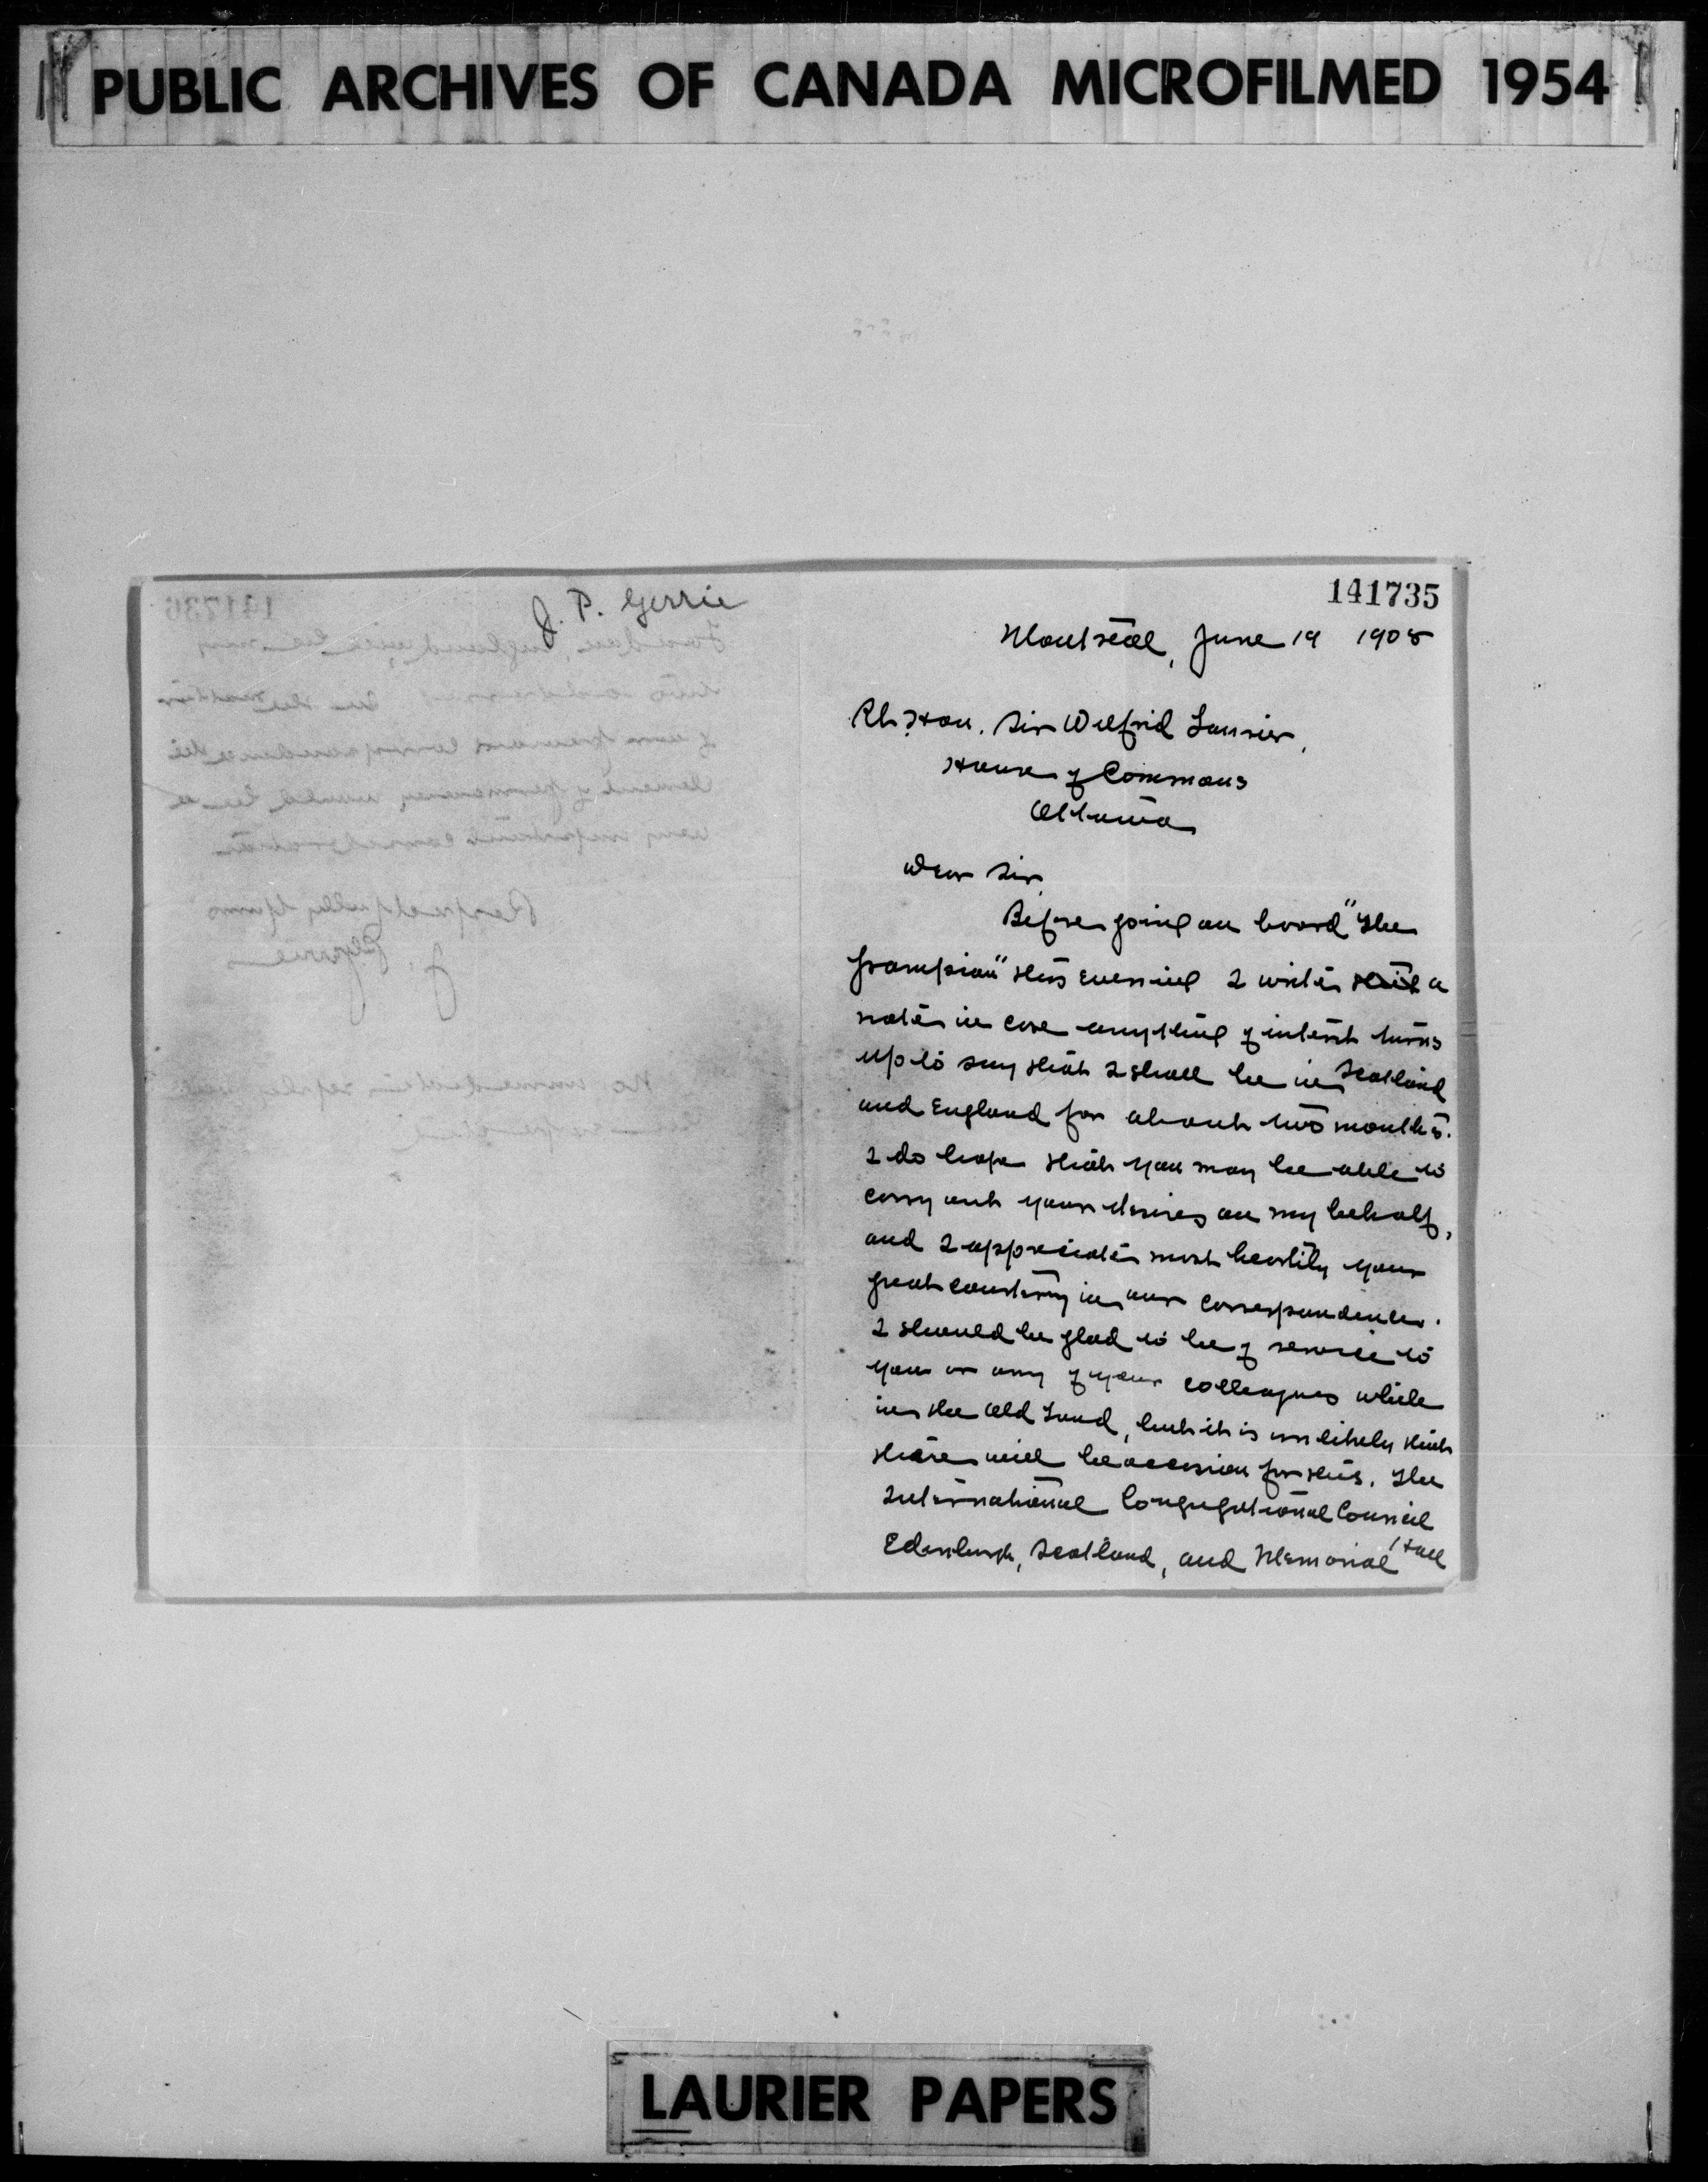 PUBLIC ARCHIVES OF CANADA MICROFILMED 1954
J. P. Gerrie
141735
Montreal, June 19 1908
Rt. Hon. Sir Wilfrid Laurier,
House of Commons
Ottawa
Dear Sir,
Before going on board "The
Grampian" this evening I write a
note in case anything of interest turns
up to say that I shall be in Scotland
and England for about two months.
I do hope that you may be able to
carry out your desires on my behalf,
and I appreciate most heartily your
great courtesy in our correspondence.
I should be glad to be of service to
you or any of your colleagues while
in the Old Land, but it is unlikely that
there will be occasion for this. The
International Congregational Council
Edinburgh, Scotland, and Memorial Hall
141736
London, England, will be my
two addresses. In the matter
of our previous correspondence the
element of permanency would be a
very important consideration
Respectfully Yours
J. P. Gerrie
No immediate reply
LAURIER PAPERS